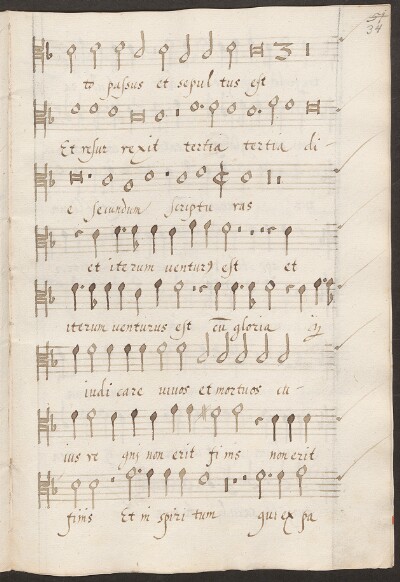 34
to passus et sepul tus est
Et resur rexit tertia tertia di-
e secundum scriptu ras
et iterum uentur9 est et
iterum uenturus est cũ gloria ij
iudi care uiuos et mortuos cu-
ius re gni non erit finis non erit
finis Et in spiri tum qui ex pa